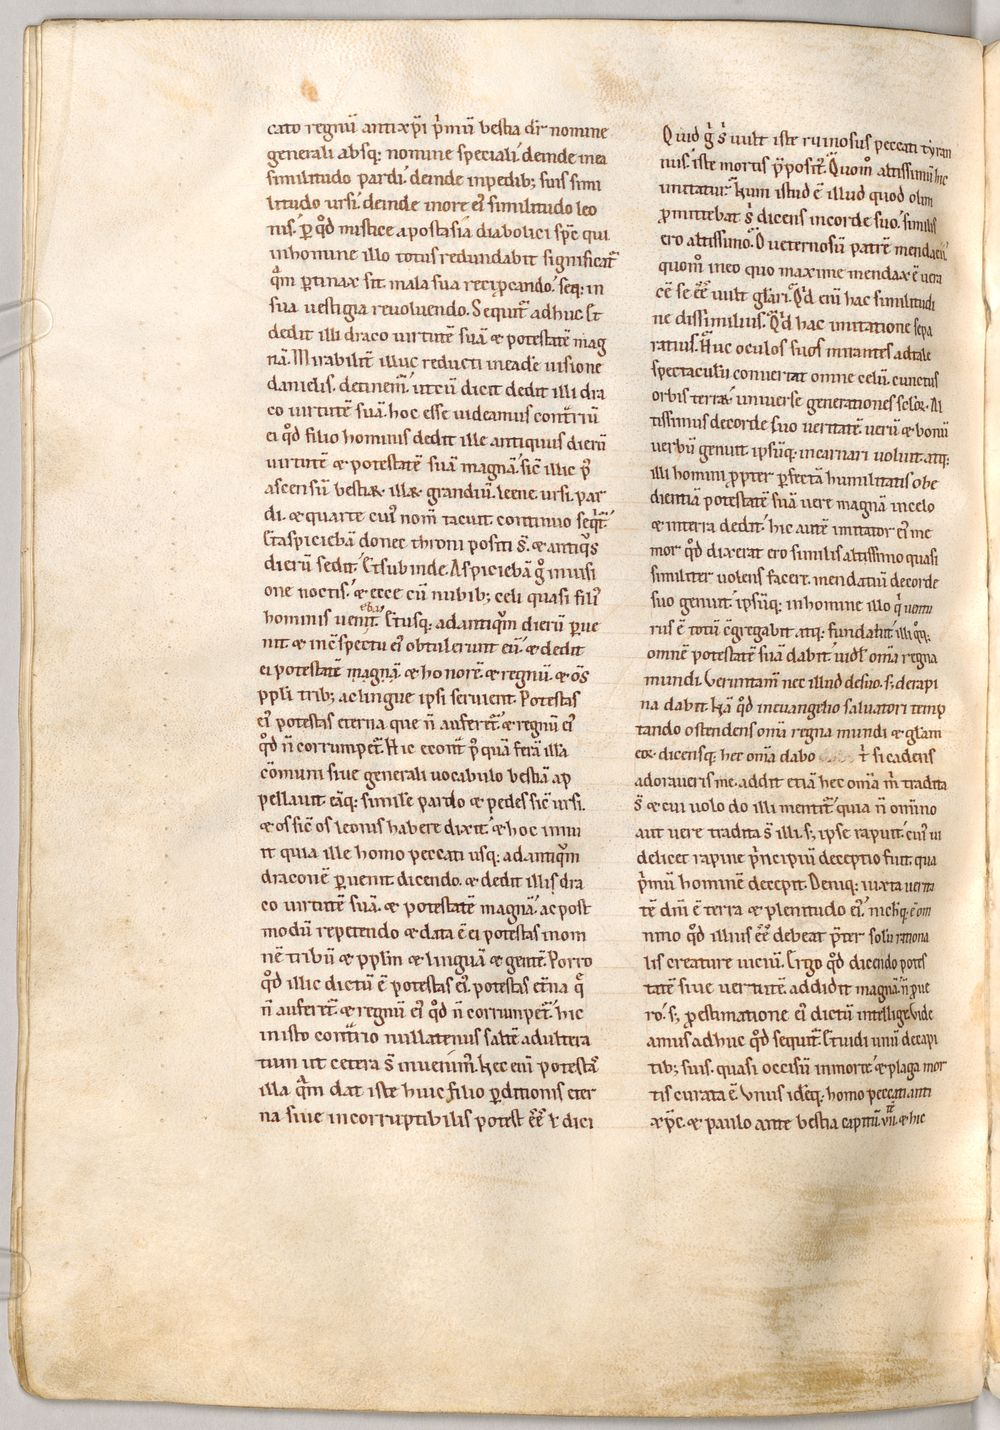 cato regnū antixp̄i p̄mū bestia dr̄ nomine
generali absq; nomine speciali. deinde in ea
similitudo pardi. deinde in pedib; suis simi
litudo ursi. deinde in ore ei᷒ similitudo leo
nis. ꝑ qd̄ mistice apostasiā diabolici sp̄c qui
in homine illo totus redundabit significat᷑
qm̄ ꝑtinax sit mala sua recip̱cando. seq; in
sua vestigia revolvendo. Sequit᷑ adhuc Et
dedit illi draco virtutē suā & potestatē mag
nā. Mirabilit᷑ illuc reducti in eadē visione
danielis. detinem᷒. ut cū dicit dedit illi dra
co virtutē suā. hoc esse videamus cont̄riū
ei qd̄ filio hominis dedit ille antiquus dierū
virtutē & potestatē suā magnā. sic̄ illic p᷒
ascensū bestiaꝝ illaꝝ grandiū. leene. ursi. par
di. & quarte cui᷒ nom̄ tacuit. continuo seqt᷑.
Et aspiciebā donec throni positi s̄. & antiq᷒s
dierū sedit. Et subinde. Aspiciebā g̊ in visi
one noctis. & ecce cū nubib; celi quasi fili᷒
hominis veniebat. Et usq; ad antiqm̄ dierū ꝑve
nit. & in c̄spectu ei᷒ obtulerunt eū. & dedit
ei potestatē magnā. & honorē. & regnū. & om̄s
pp̄li trib; ac lingue ipsi servient. Potestas
ei᷒ potestas eterna que n̄ auferet᷑. & regnū ei᷒
qd̄ n̄ corrumpet᷑. Hic econt̄ p᷒quā ferā illā
cōmuni sive generali vocabulo bestiā ap
pellavit. eāq; similē pardo & pedes sic̄ ursi.
& os sic̄ os leonis habere dixit. & hoc innu
it quia ille homo peccati usq; ad antiqm̄
draconē ꝑvenit dicendo. & dedit illis dra
co virtutē suā. & potestatē magnā. ac post
modū repetendo & data ē ei potestas in om
nē tribū & pp̄lm & linguā & gentē. Porro
qd̄ illic dictū ē potestas ei᷒. potestas et̄na q̄
n̄ auferet᷑. & regnū ei᷒ qd̄ n̄ corrumpet᷑. hic
in isto cont̄rio nullatenus saltē adultera
tum ut cetera s̄ invenim᷒. Nec eni᷒ potestas
illa qm̄ dat iste huic filio ꝑditionis eter
na sive incorruptibilis potest ēe t̄ dici
Quid g̊ s̄ vult iste ruinosus peccati tyran
nus. iste mortis p̄posit᷒. Quom̊ altissimū hic
imitatur. Nam istud ē illud quod olim
ꝓmittebat s̄ dicens in corde suo. similis
ero altissimo. O veternosū patrē mendacii
quom̊ in eo quo maxime mendax ē vera
cē se ēe vult gl̄ari. Qd̄ eni᷒ hac similitudi
ne dissimilius. Qd̄ hac imitatione sepa
ratius. Huc oculos suos mirantes ad tale
spectaculū convertat omne celū. cunctus
orbis terraꝝ. universe generationes sc̄loꝝ. Al
tissimus de corde suo veritatē. verū & bonū
verbū genuit. ipsūq; incarnari voluit. atq;
illi homini ꝓpter ꝑfectā humilitatis obe
dientiā potestatē suā vere magnā in celo
& in terra dedit. hic autē imitator ei᷒ me
mor qd̄ dixerat ero similis altissimo quasi
similiter volens facere. mendatiū de corde
suo genuit. ipsūq; in homine illo q̄ ventu
rus ē totū c̄gregabit atq; fundabit. illiq̊q;
omnē potestatē suā dabit. vidl̄ om̄ia regna
mundi. Verumtam̄ nec illud de suo. s; de rapi
na dabit. Nā qd̄ in evangelio salvatori temp
tando ostendens om̄ia regna mundi & gl̄am
eoꝝ. dicensq; hec om̄ia dabo t̄ si cadens
adoraveris me. addit etiā hec om̄ia m̄ tradita
s̄ & cui volo do illi mentit᷑. quia n̄ omnino
aut vere tradita s̄ illi. s; ipse rapuit. cui᷒ vi
delicet rapine p̄ncipiū deceptio fuit. qua
p̄mū hominē decepit. Deniq; iuxta verita
tē dn̄i ē terra & plenitudo ei᷒. nichilq; ē om
nino qd̄ illius ēe debeat p̄ter soliu᷒ rationa
lis creature viciū. Ergo qd̄ dicendo potes
tatē sive vertutē. addidit magnā. n̄ ꝓ ve
ro. s; ꝓ estimatione ei᷒ dictū intellige. Vide
amus adhuc qd̄ sequit᷑. Et vidi unū de capi
tib; suis. quasi occisū in morte. & plaga mor
tis curata ē. Unus ideq; homo peccati anti
xp̄c. & paulo ante bestia capitū. vii. & hic